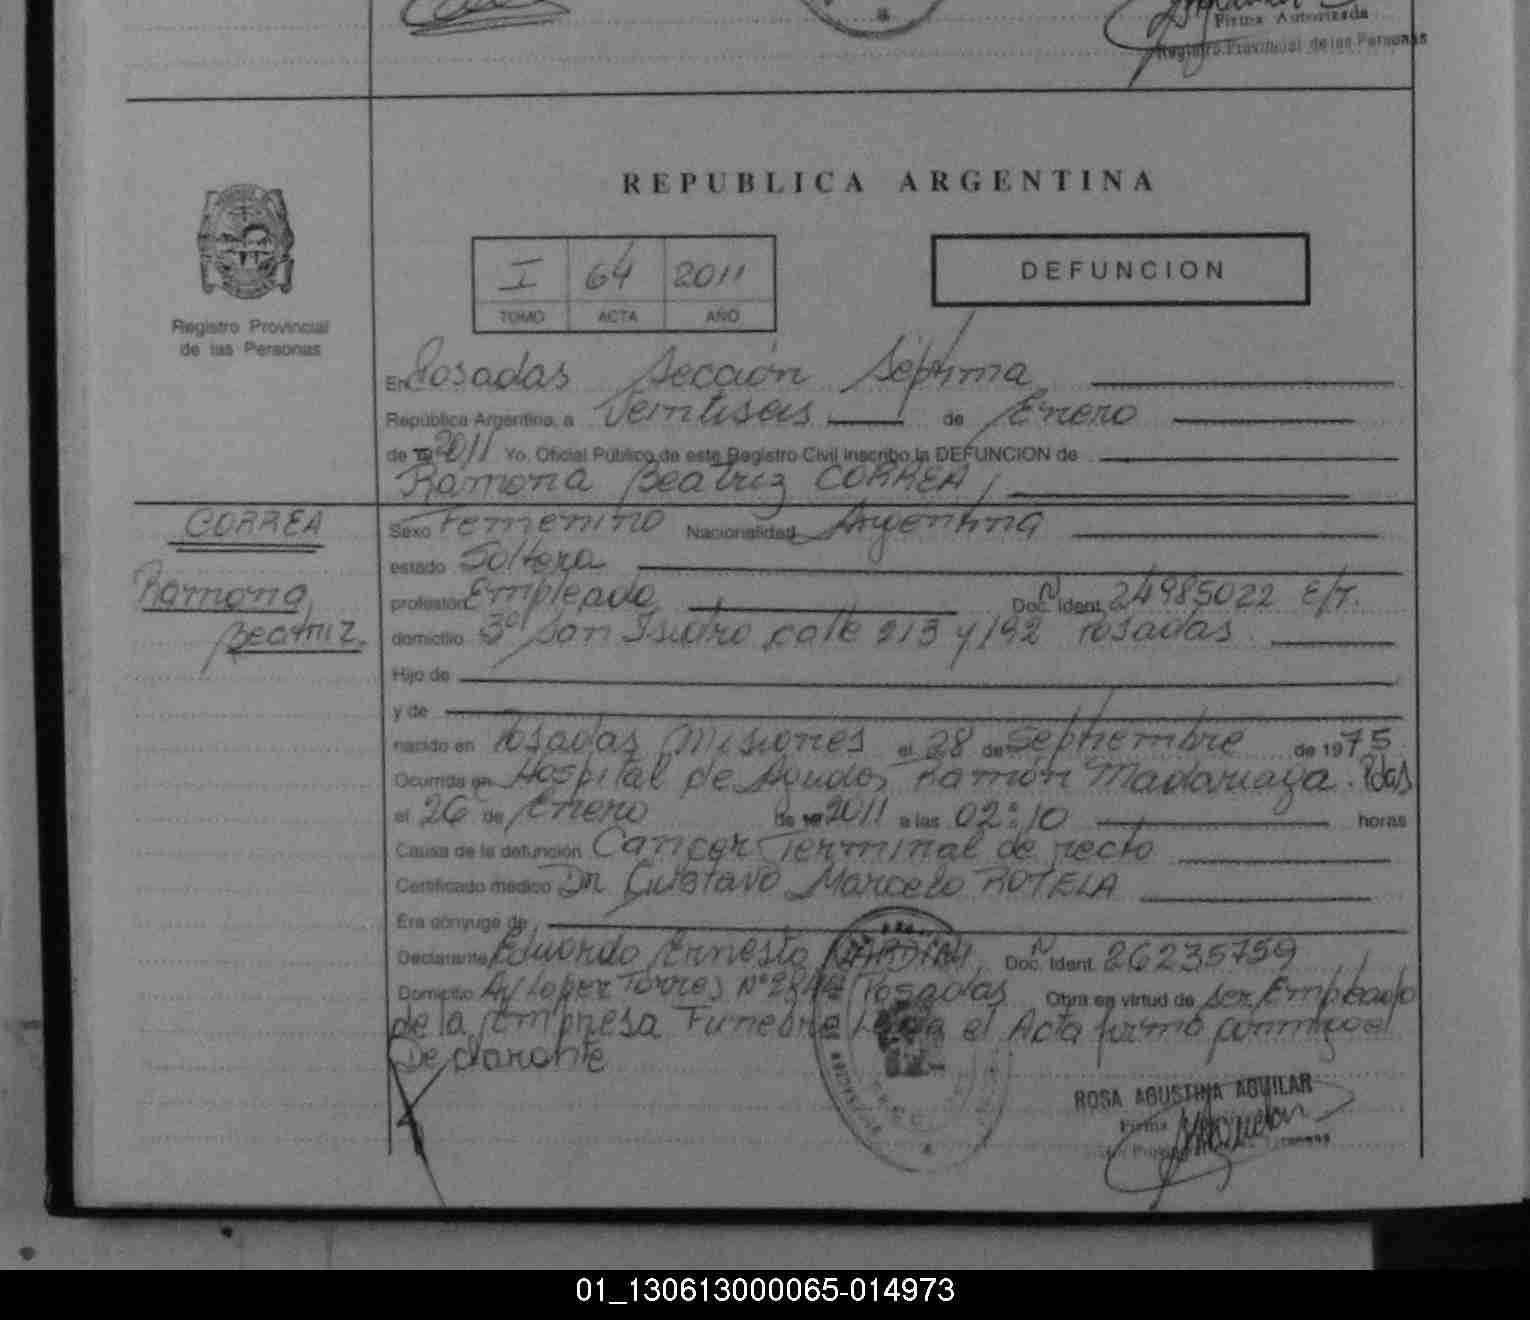 Firma Autorizada
Registro Provincial de las Personas
REPUBLICA ARGENTINA
Registro Provincial
de las Personas
I 64 2011
TOMO ACTA AÑO
DEFUNCION
En Posadas Sección Séptima
República Argentina, a Veintiseis de Enero
de 19 2011 Yo, Oficial Público de este Registro Civil inscribo la DEFUNCION de
Ramona Beatriz CORREA,
CORREA
Ramona
Beatriz.
Sexo Femenino Nacionalidad Argentina
estado Soltera
profesión Empleada Doc. Ident. Nº 24985022 E/T.
domicilio San Isidro calle 213 y 192 Posadas
Hijo de
y de
nacido en Posadas Misiones el 28 de Septiembre de 1975
Ocurrida en Hospital de Agudos Ramón Madariaga. Pdas
el 26 de Enero de 19 2011 a las 02:10 horas
Causa de la defunción Cancer Terminal de recto
Certificado médico Dr. Gustavo Marcelo ROTELA
Era cónyuge de
Declarante Eduardo Ernesto Doc. Ident. Nº 26235759
Domicilio Av Lopez Torres Nº Posadas Obra en virtud de ser Empleado
de la Empresa Funebre el Acta firmó conmigo el
Declarante
ROSA AGUSTINA AGUILAR
Firma
01_130613000065-014973